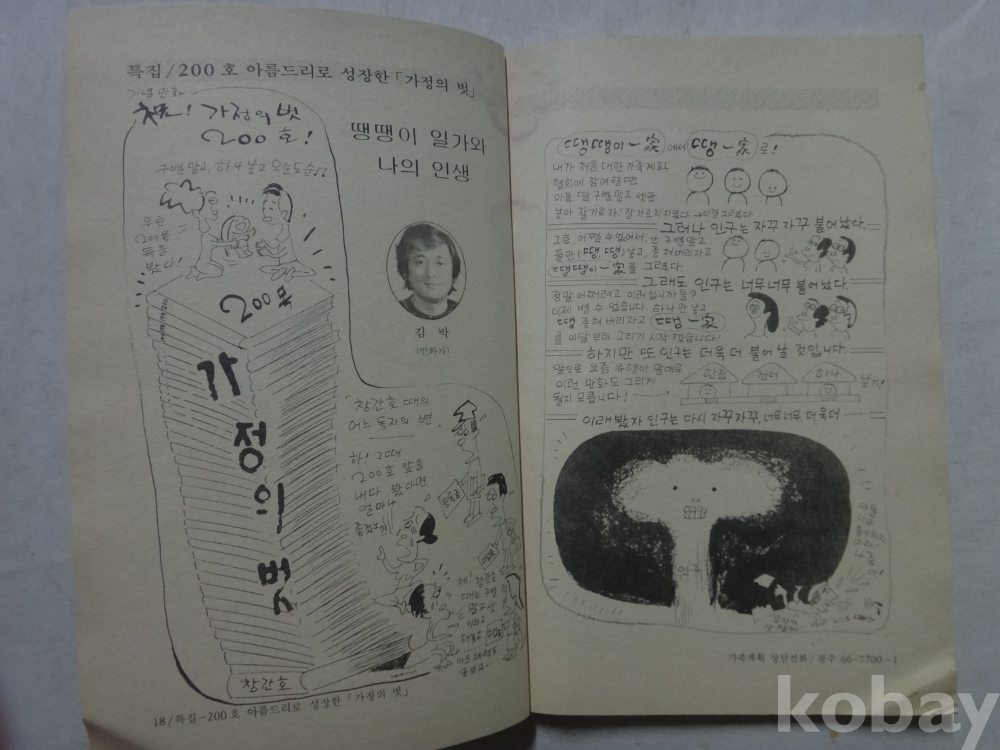 특집/200호 아름드리로 성장한 「가정의 벗」
기념만화
축! 가정의 벗
200호!
구별말고, 하나 낳고 오순도순
우린
200쪽
득을
봤다!
땡땡이 일가와
나의 인생
김 박
(만화가)
200호
가정의벗
「창간호 때의
어느 독자의 변」
하! 그때
200호 앞을
내다 봤다면
얼마나
좋겠느가
제! 창간호
때는 구별
말고 셋
이라고
창간호
18/특집-200호 아름드리로 성장한 「가정의 벗」
땡땡이 一家에서 땡 一家로!
내가 처음, 대한가족계획
협회에 참여할땐
아들, 딸 구별말고 셋만
낳아 잘기르자!
그러나 인구는 자꾸자꾸 불어났다.
그후, 어쩔수없어서, 난 구별말고
둘만 (땡,땡)낳고, 종쳐버리자고
땡땡이 一家를 그렸다.
그래도 인구는 너무너무 불어났다.
정말 어쩌려고 이러십니까?
이제 별 수 없습니다 하나만 낳고
땡 종쳐 버리자고 땡 一家
를 이달부터 그리기 시작했습니다!
하지만 또 인구는 더욱 더 불어 날 것입니다.
앞으로 요즘 유행어 말대로
이런 만화도 그리게
될지 모릅니다!
한집 건너 하나 낳기!
이래봤자 인구는 다시 자꾸자꾸, 너무너무, 더욱더 ……
인구
가족계획 상담전화/광주 66-7700~1
kobay